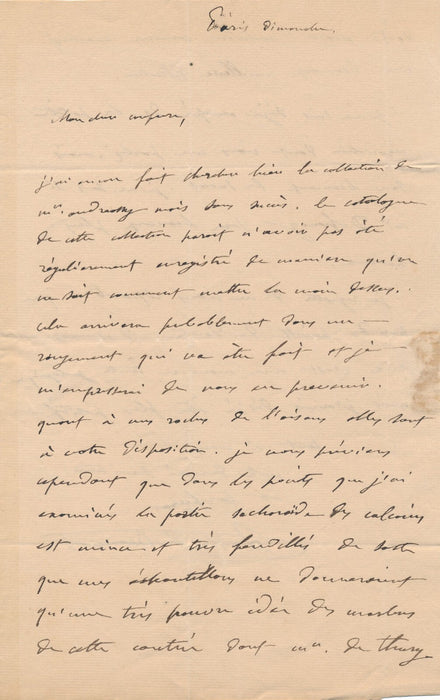 Paris dimanche.
Mon cher confrère,
j'ai encore fait chercher hier la collection de
mr. andreossy mais sans succès. le catalogue
de cette collection parait n'avoir pas été
régulièrement enregistré de manière qu'on
ne sait comment mettre la main dessus.
cela arrivera probablement dans un
rangement qui va être fait et je
m'empresserai de vous en prevenir.
quant à mes roches de l'oisans elles sont
à votre disposition. je vous préviens
cependant que dans les points que j'ai
examinés la partie sacharoïde des calcaires
est mince et très fendillés de sorte
que mes échantillons ne donneraient
qu'une très pauvre idée des marbres
de cette contrée dont mr. de thury